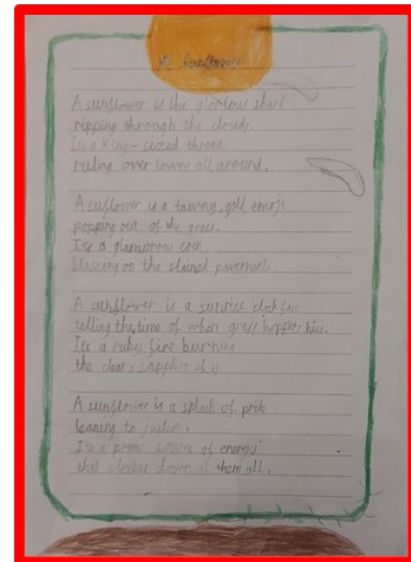 A Sunflower
A sunflower is the glorious
ripping through the clouds.
Its a king-sized throne
ruling over towns all around.
A sunflower is a tawny, gold emoji
popping out of the grass.
Its a glamorous coin
blazing on the stained pavement.
A sunflower is a sunrise clock face
telling the time of when grass hoppers
Its a ruby fire burning
the clear, sapphire sky.
A sunflower is a splash of pride
leaning to justice.
Its a power source of energy
that down at them all.